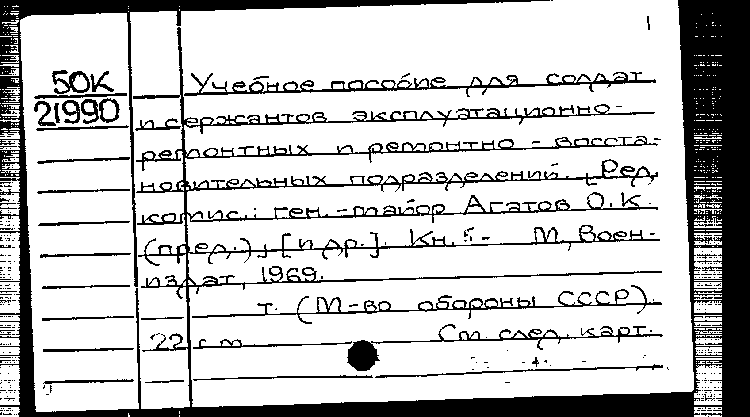 1
50К Учебное пособие для солдат
21990 и сержантов эксплуатационно-
ремонтных и ремонтно-восста-
новительных подразделений. [Ред.
комис.: ген.-майор Агатов О.К.
(пред.), [и др.]. Кн. 5- М., Воен-
издат, 1969.
т. (М-во обороны СССР).
22 см См. след. карт.